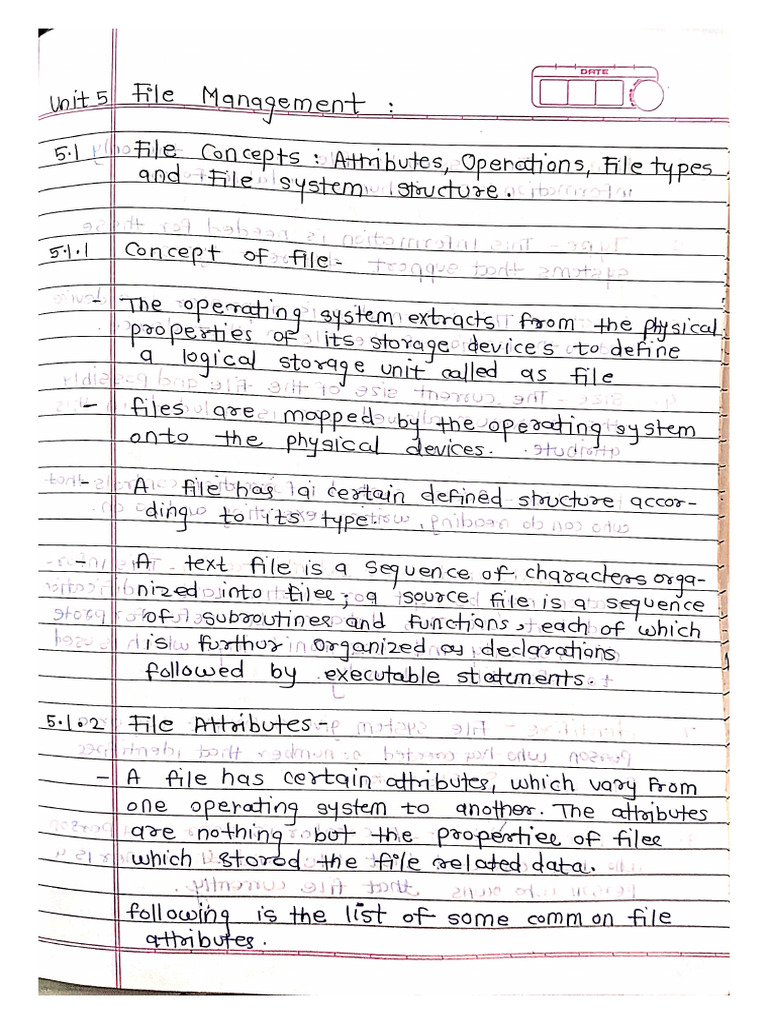 DATE
Unit 5 File Management :
5.1 File Concepts : Attributes, Operations, File types
and File system structure.
5.1.1 Concept of file -
- The operating system extracts from the physical
properties of its storage devices to define
a logical storage unit called as file
- files are mapped by the operating system
onto the physical devices.
- A file has a certain defined structure accor-
ding to its type.
- A text file is a sequence of characters orga-
nized into files; a source file is a sequence
of subroutines and functions, each of which
is furthur organized as declarations
followed by executable statements.
5.1.2 File Attributes -
- A file has certain attributes, which vary from
one operating system to another. The attributes
are nothing but the properties of files
which stored the file related data.
following is the list of some common file
attributes.